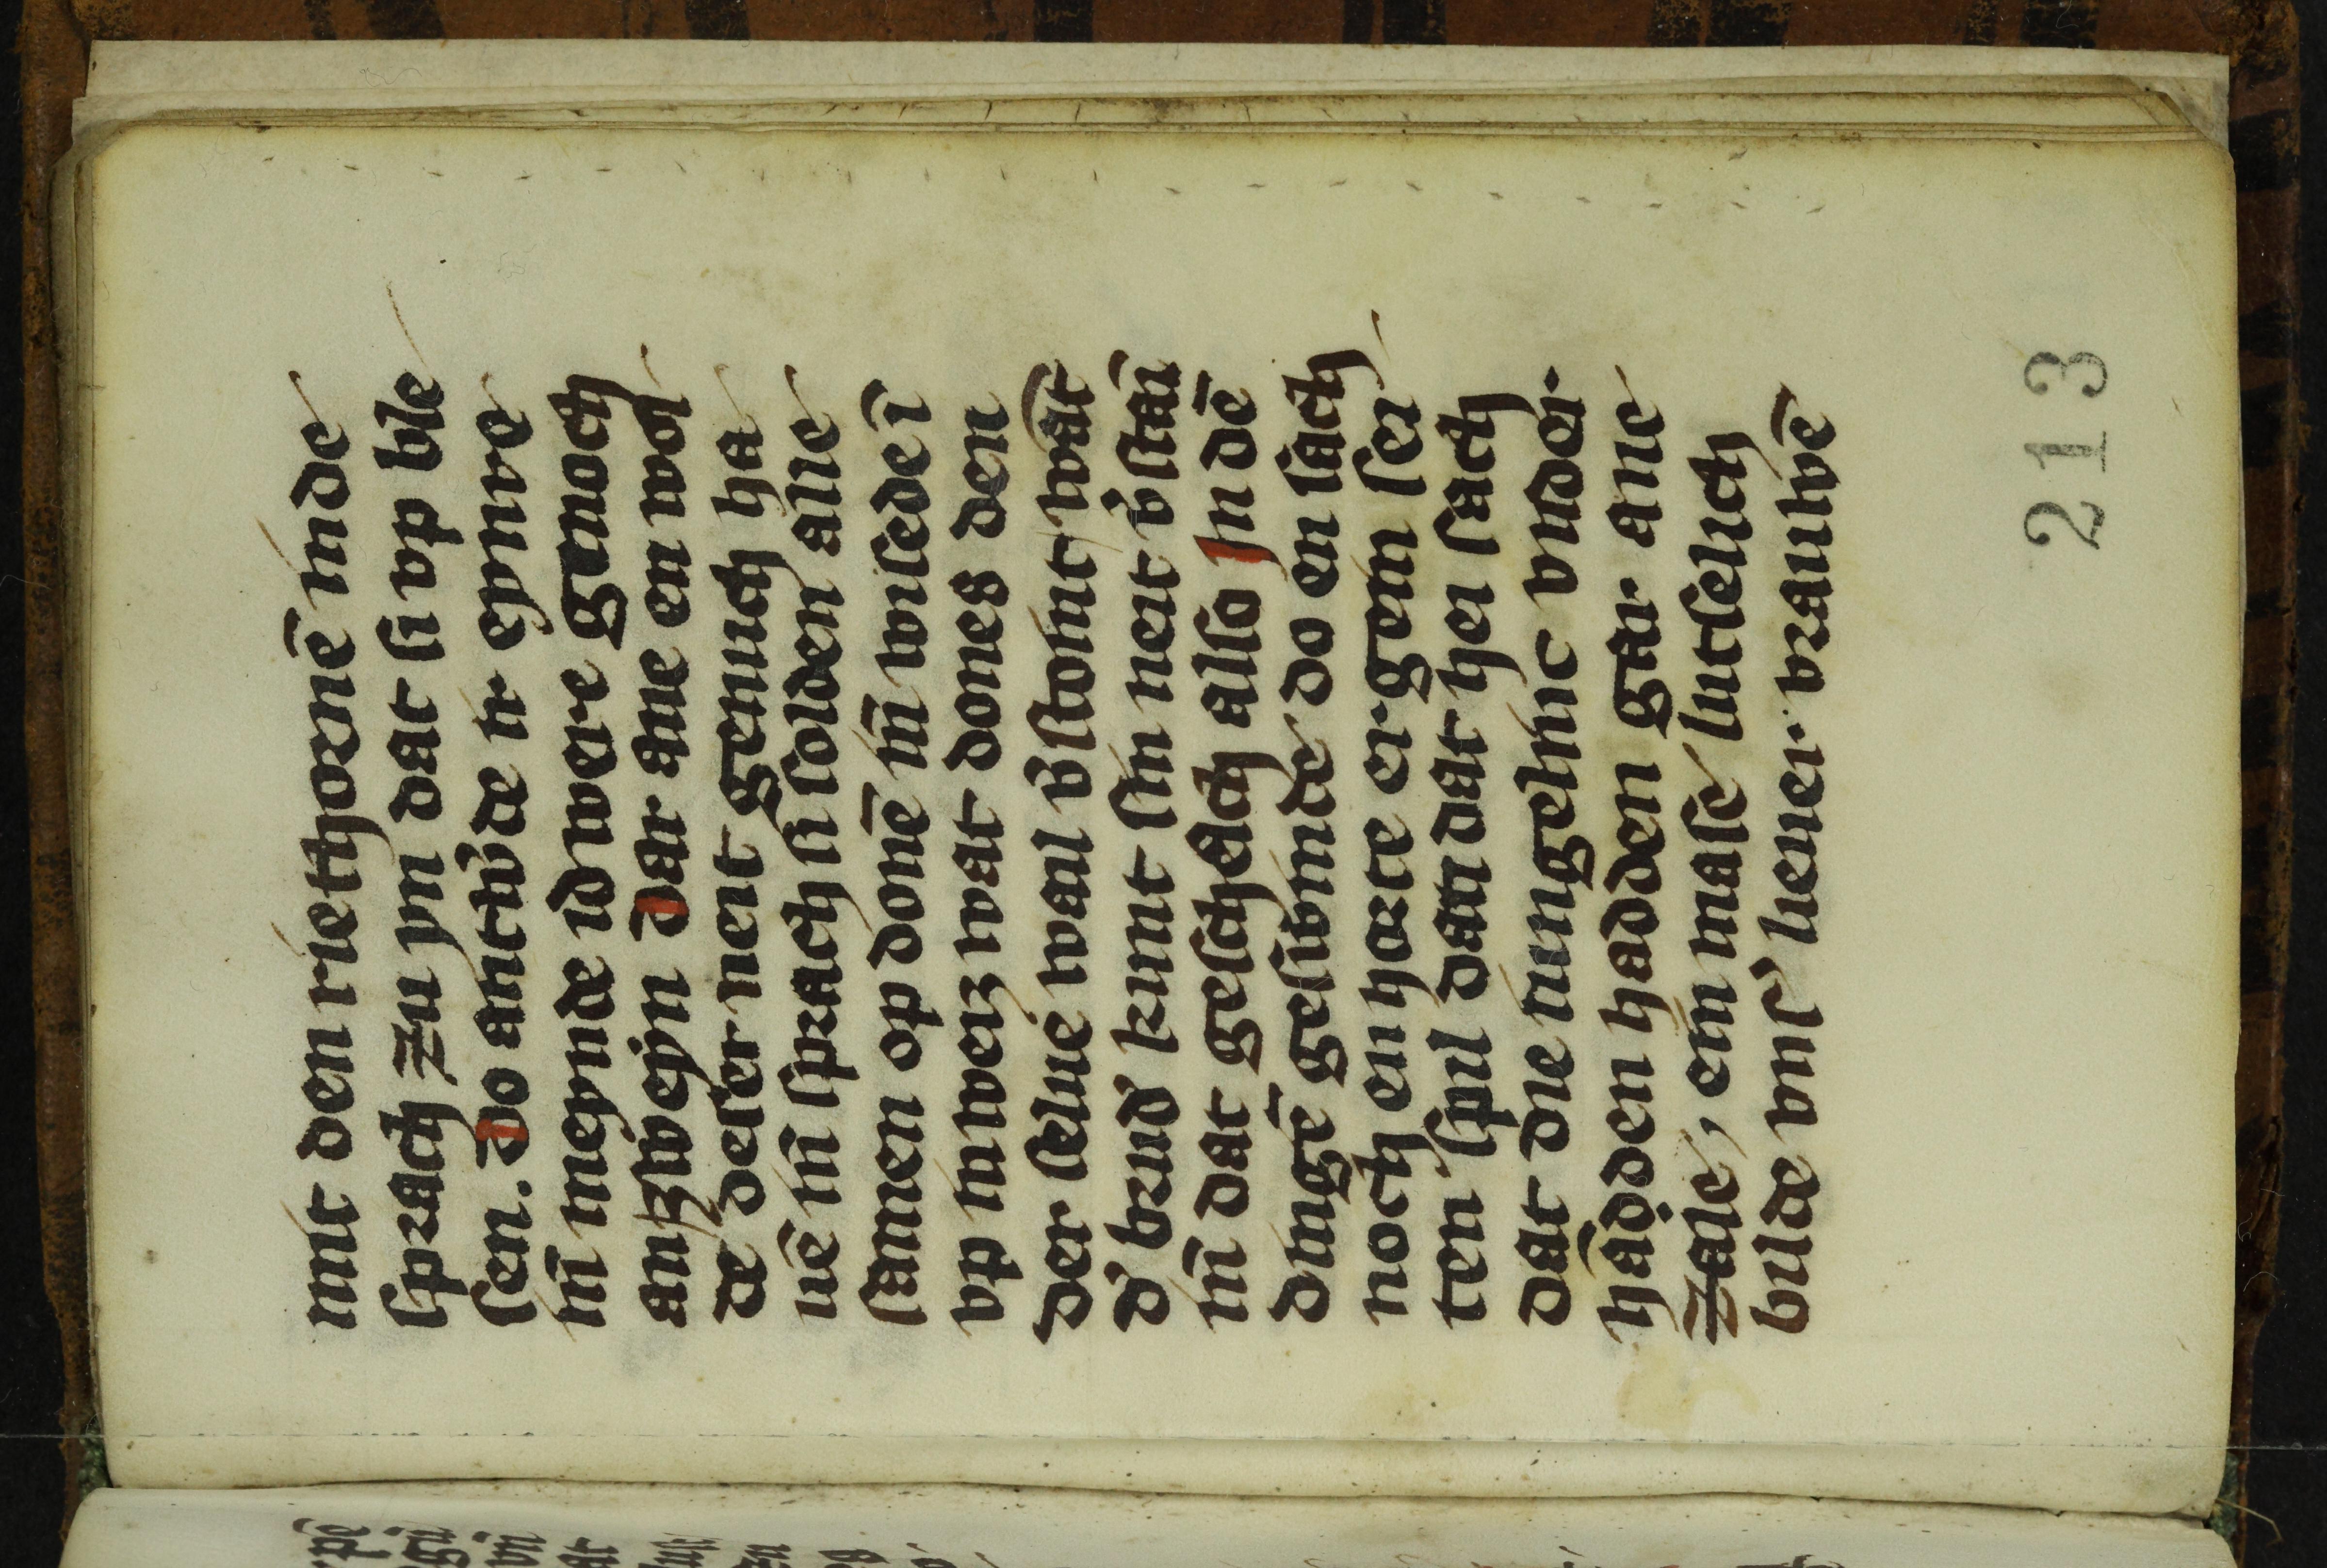 mit den riethornē inde
sprach zu yn dat si vp ble
sen. Do antwͦde ir eynre
in̄ meynde id were genoch
an zweyn Dar ane en wol
de deser neit genuch ha
uē in̄ sprach si solden alle
samen op donē in̄ wisede ī
vp inweiz wat dones den
Der selue wail v͛stoint wāt
d͛ brud͛ kunt sin neit v͛stān
in̄ dat geschach also In dē
dingē gesivnde do en sach
noch en horte er gein sei
ten spil dan dat hei sach
dat die iungelinc vnder
hadden hadden gar ane
zale, ein mase lutselich
bilde vns͛ lieuer vrauwē
213